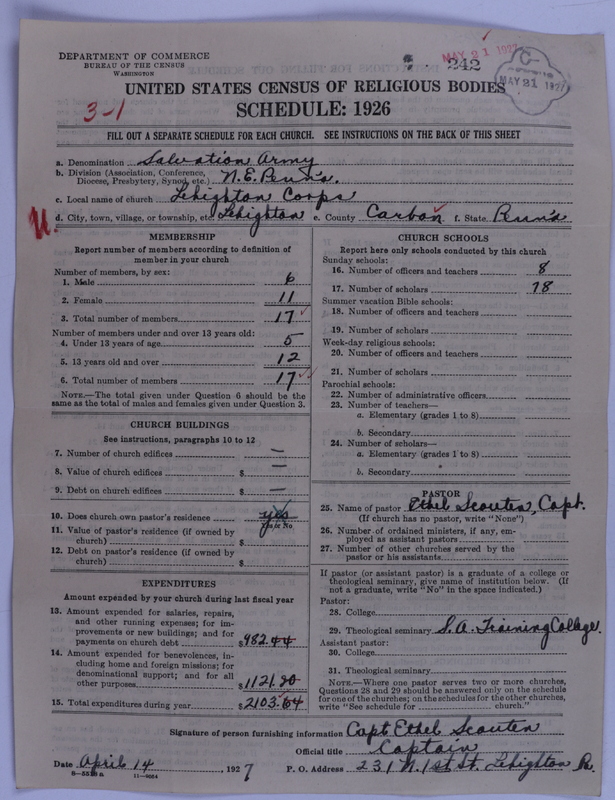 DEPARTMENT OF COMMERCE
BUREAU OF THE CENSUS
WASHINGTON
242
MAY 21 1927
C
MAY 21 1927
UNITED STATES CENSUS OF RELIGIOUS BODIES
3-1
SCHEDULE: 1926
FILL OUT A SEPARATE SCHEDULE FOR EACH CHURCH. SEE INSTRUCTIONS ON THE BACK OF THIS SHEET
a. Denomination Salvation Army
b. Division (Association, Conference, Diocese, Presbytery, Synod, etc.) N.E. Penn'a.
c. Local name of church Lehighton Corps
U.
d. City, town, village, or township, etc. Lehighton e. County Carbon f. State Penn'a
MEMBERSHIP
Report number of members according to definition of
member in your church
Number of members, by sex:
1. Male 6
2. Female 11
3. Total number of members 17
Number of members under and over 13 years old:
4. Under 13 years of age 5
5. 13 years old and over 12
6. Total number of members 17
NOTE.—The total given under Question 6 should be the
same as the total of males and females given under Question 3.
CHURCH BUILDINGS
See instructions, paragraphs 10 to 12
7. Number of church edifices —
8. Value of church edifices $ —
9. Debt on church edifices $ —
10. Does church own pastor's residence yes
Yes or No
11. Value of pastor's residence (if owned by
church) $
12. Debt on pastor's residence (if owned by
church) $
EXPENDITURES
Amount expended by your church during last fiscal year
13. Amount expended for salaries, repairs,
and other running expenses; for im-
provements or new buildings; and for
payments on church debt $ 982.44
14. Amount expended for benevolences, in-
cluding home and foreign missions; for
denominational support; and for all
other purposes $ 1121.20
15. Total expenditures during year $ 2103.64
CHURCH SCHOOLS
Report here only schools conducted by this church
Sunday schools:
16. Number of officers and teachers 8
17. Number of scholars 78
Summer vacation Bible schools:
18. Number of officers and teachers
19. Number of scholars
Week-day religious schools:
20. Number of officers and teachers
21. Number of scholars
Parochial schools:
22. Number of administrative officers
23. Number of teachers—
a. Elementary (grades 1 to 8)
b. Secondary
24. Number of scholars—
a. Elementary (grades 1 to 8)
b. Secondary
PASTOR
25. Name of pastor Ethel Scouten, Capt.
(If church has no pastor, write "None")
26. Number of ordained ministers, if any, em-
ployed as assistant pastors
27. Number of other churches served by the
pastor or his assistants
If pastor (or assistant pastor) is a graduate of a college or
theological seminary, give name of institution below. (If
not a graduate, write "No" in the space indicated.)
Pastor:
28. College
29. Theological seminary S.A. Training College.
Assistant pastor:
30. College
31. Theological seminary
NOTE.—Where one pastor serves two or more churches,
Questions 28 and 29 should be answered only on the schedule
for one of the churches; on the schedules for the other churches,
write "See schedule for church."
Signature of person furnishing information Capt Ethel Scouten
Official title Captain
Date April 14, 1927 P. O. Address 231 N. 1st St. Lehighton Pa.
8—5518a 11—9064